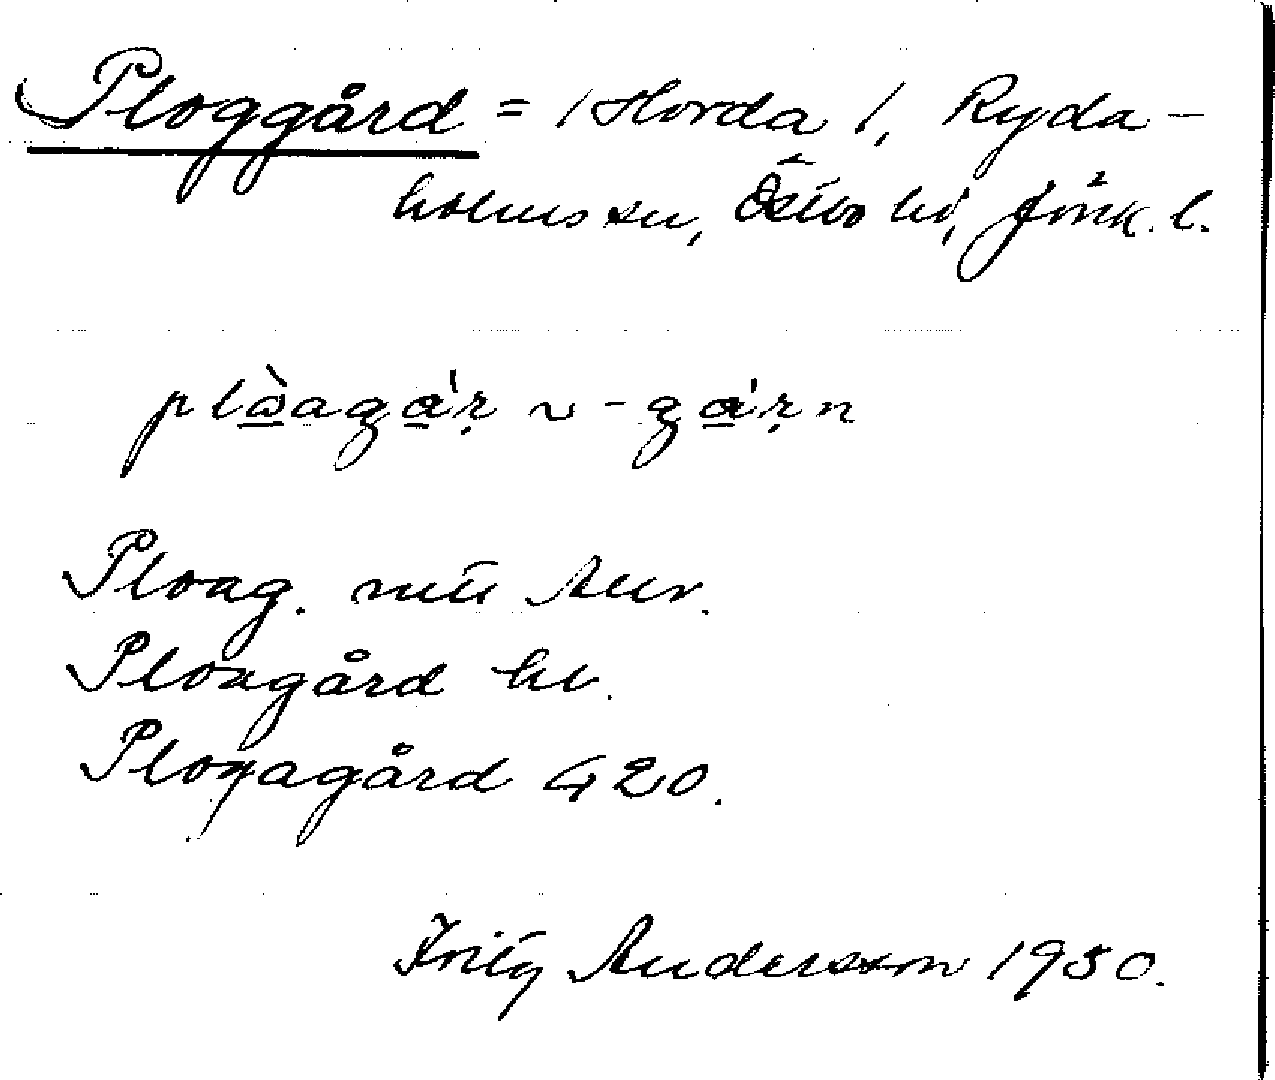 Ploggård = 1 Horda 1, Ryda-
holms sn, Östbo hd, Jönk. l.
plɷ̀agɑ́'ṛ ~ -gɑ́'ṛn
Ploag.
Ploagård
Plogagård G 20.
Fritz Andersson 1930.